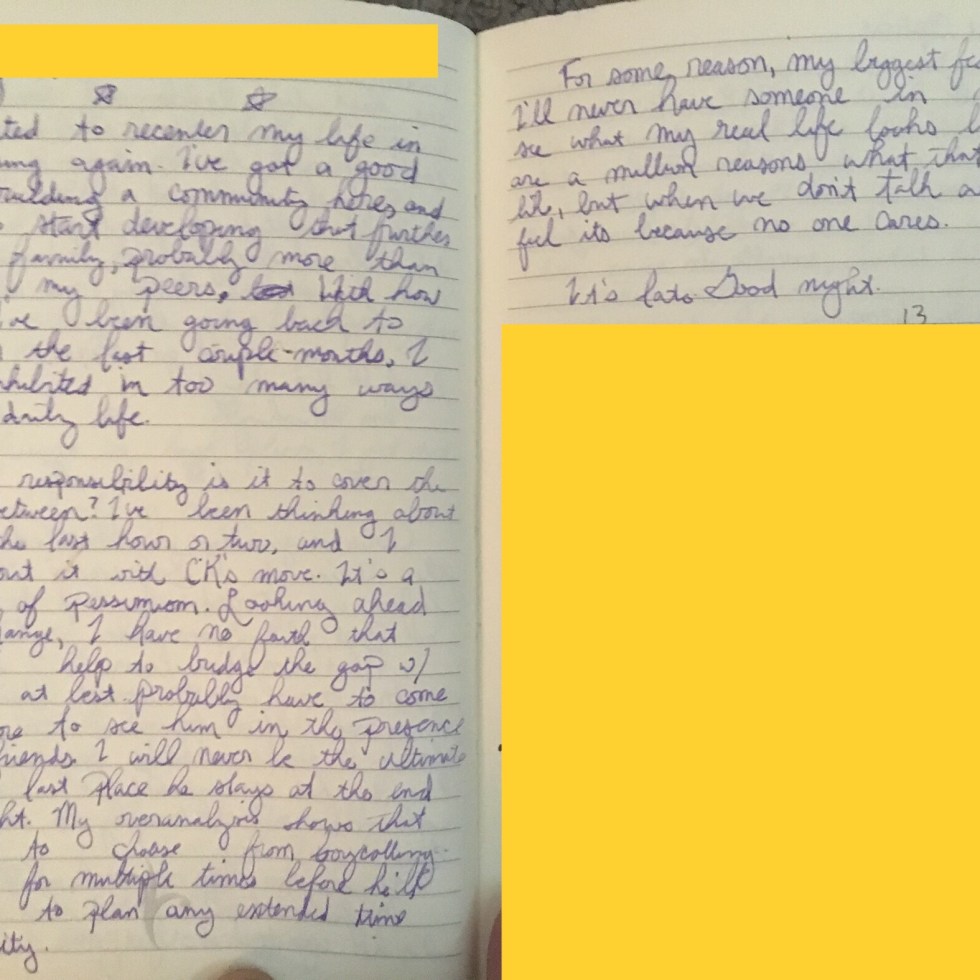 ted to recenter my life in
ung again. I've got a good
building a community here, and
start developing that further
family, probably more than
my peers, With how
I've been going back to
the last couple-months, I
nhibited in too many ways
daily life.
responsibility is it to cover the
etween? I've been thinking about
he last hour or two, and I
out it with CK's move. It's a
of pessimism. Looking ahead
ange, I have no faith that
help to bridge the gap w/
at best probably have to come
ore to see him in the presence
friends. I will never be the ultimate
last place he stays at the end
ht. My overanalysis shows that
to choose from boycalling
for multiple times before he'll
to plan any extended time
ity.
For some reason, my biggest fe
I'll never have someone in
see what my real life looks l
are a million reasons what that
lik, but when we don't talk a
feel its because no one cares.
It's late. Good night.
13